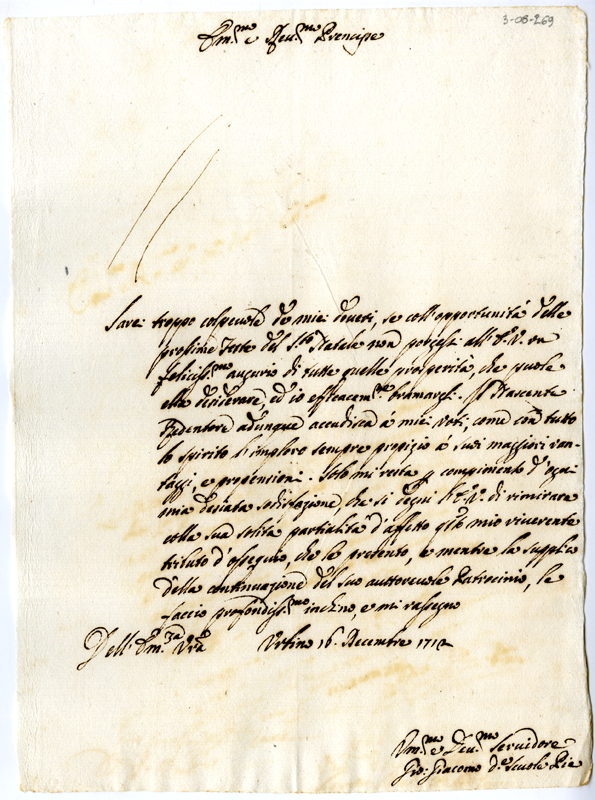 3-08-269
Em.mo e Rev.mo Prencipe
Sarei troppo colpevole de miei doveri, se coll'opportunità delle
prossime Feste del S.to Natale non porgessi all'E.V. un
feliciss.mo augurio di tutte quelle prosperità, che vuole
ella desiderare, ed io efficacem.te bramargli. Il Nascente
Redentore adunque accudisca à miei voti; come con tutto
lo spirito l'imploro sempre propizio à suoi maggiori van-
taggi, e propensioni. Solo mi resta p compimento d'ogni
mia desiata sodisfazione, che si degni l'E.V. di rimirare
colla sua solita partialità d'affetto q.to mio riverente
tributo d'ossequio, che le presento, e mentre la supplico
della continuazione del suo auttorevole Patrocinio, le
faccio profondiss.mo inchino, e mi rassegno
Dell'Em.za V.ra Urbino 16. Decembre 1712
Um.mo e Dev.mo Servidore
Gio: Giacomo d.e Scuole Pie